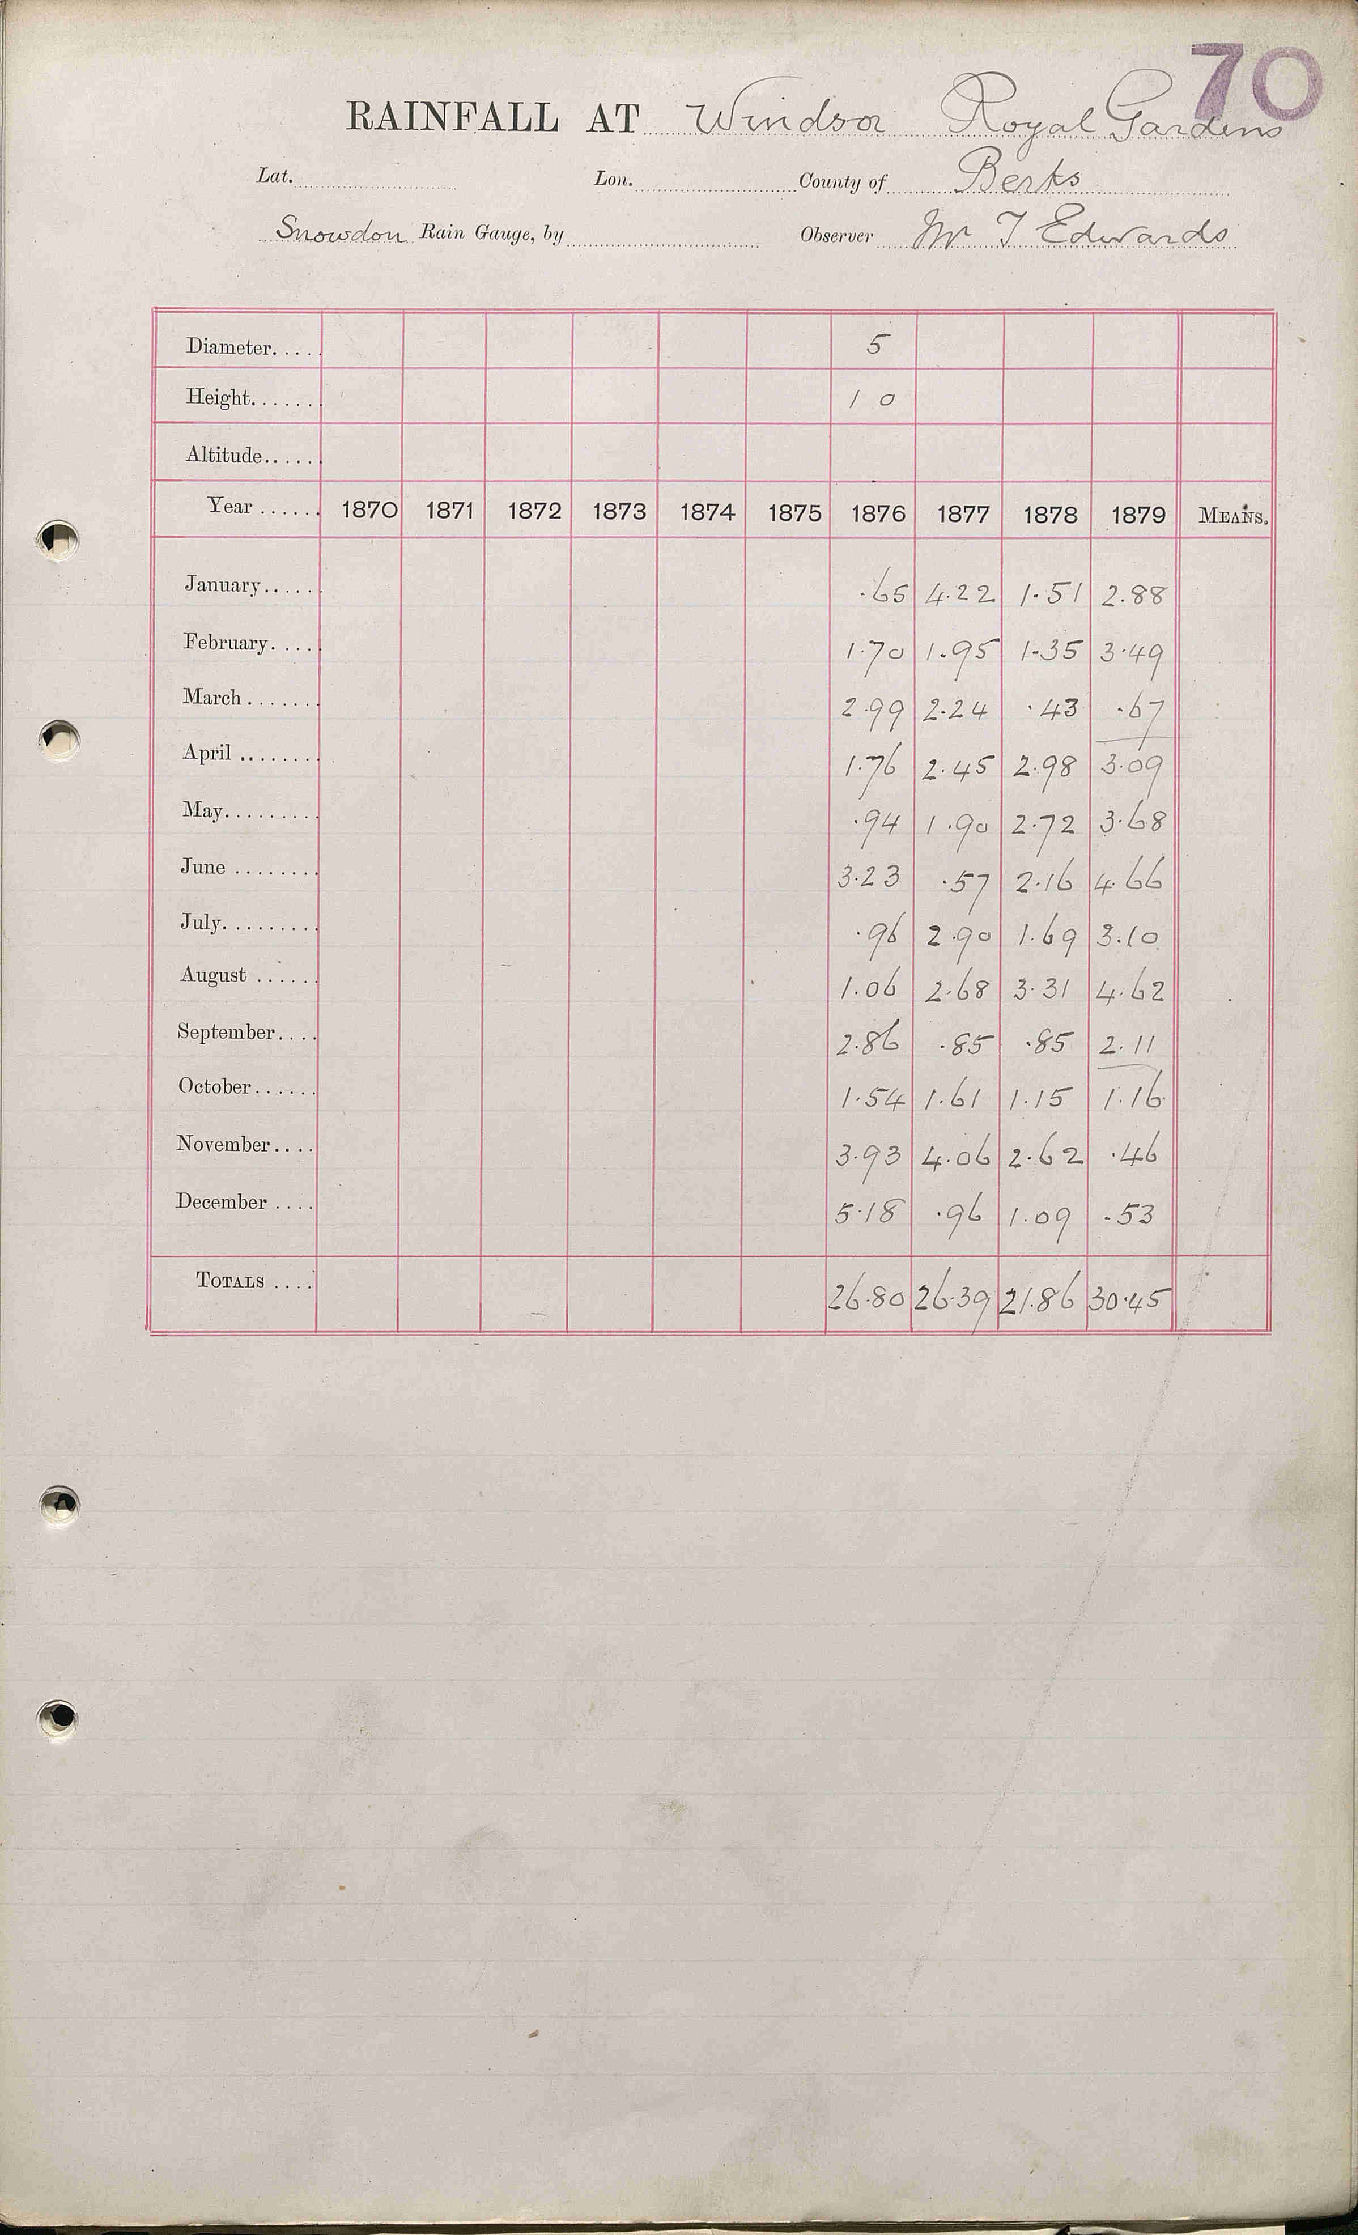 70
RAINFALL AT Windsor Royal Gardens
Lat. Lon. County of Berks
Snowdon Rain Gauge, by Observer Mr T Edwards
Diameter..... 5
Height....... 1 0
Altitude......
Year ...... 1870 1871 1872 1873 1874 1875 1876 1877 1878 1879 MEANS.
January...... .65 4.22 1.51 2.88
February..... 1.70 1.95 1.35 3.49
March ....... 2.99 2.24 .43 .67
April ........ 1.76 2.45 2.98 3.09
May......... .94 1.90 2.72 3.68
June ........ 3.23 .57 2.16 4.66
July......... .96 2.90 1.69 3.10
August ...... 1.06 2.68 3.31 4.62
September.... 2.86 .85 .85 2.11
October...... 1.54 1.61 1.15 1.16
November.... 3.93 4.06 2.62 .46
December .... 5.18 .96 1.09 .53
TOTALS .... 26.80 26.39 21.86 30.45